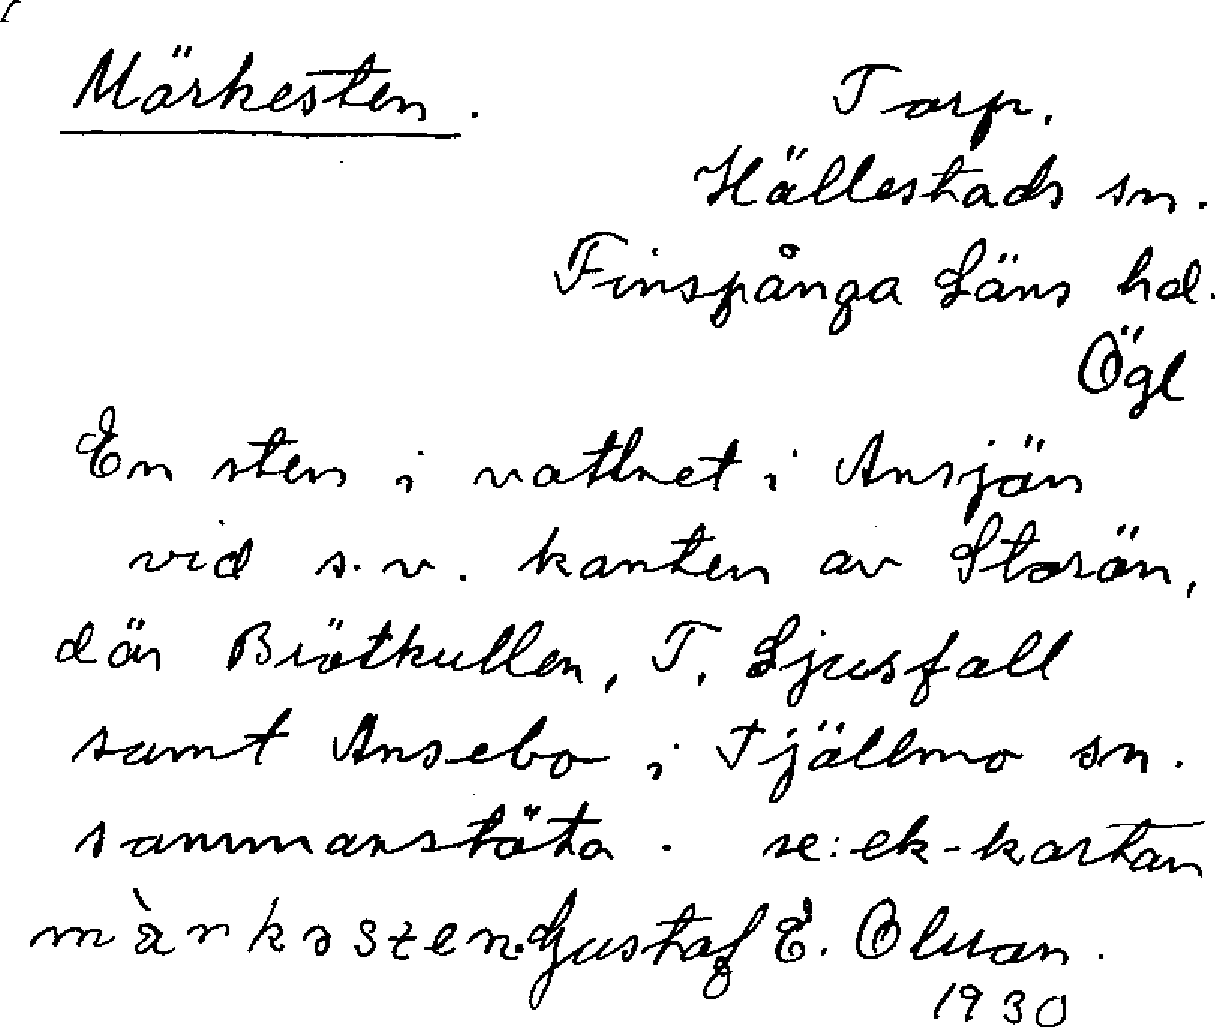 Märkesten.
Torp.
Hällestads sn.
Finspånga Läns hd.
Ögl
En sten i vattnet i Ansjön
vid s.v. kanten av Storön,
där Brötkullen, T. Ljusfall
samt Ansebo i Tjällmo sn.
sammanstöta. se: ek-kartan
märkəsten. Gustaf E. Olsson.
1930